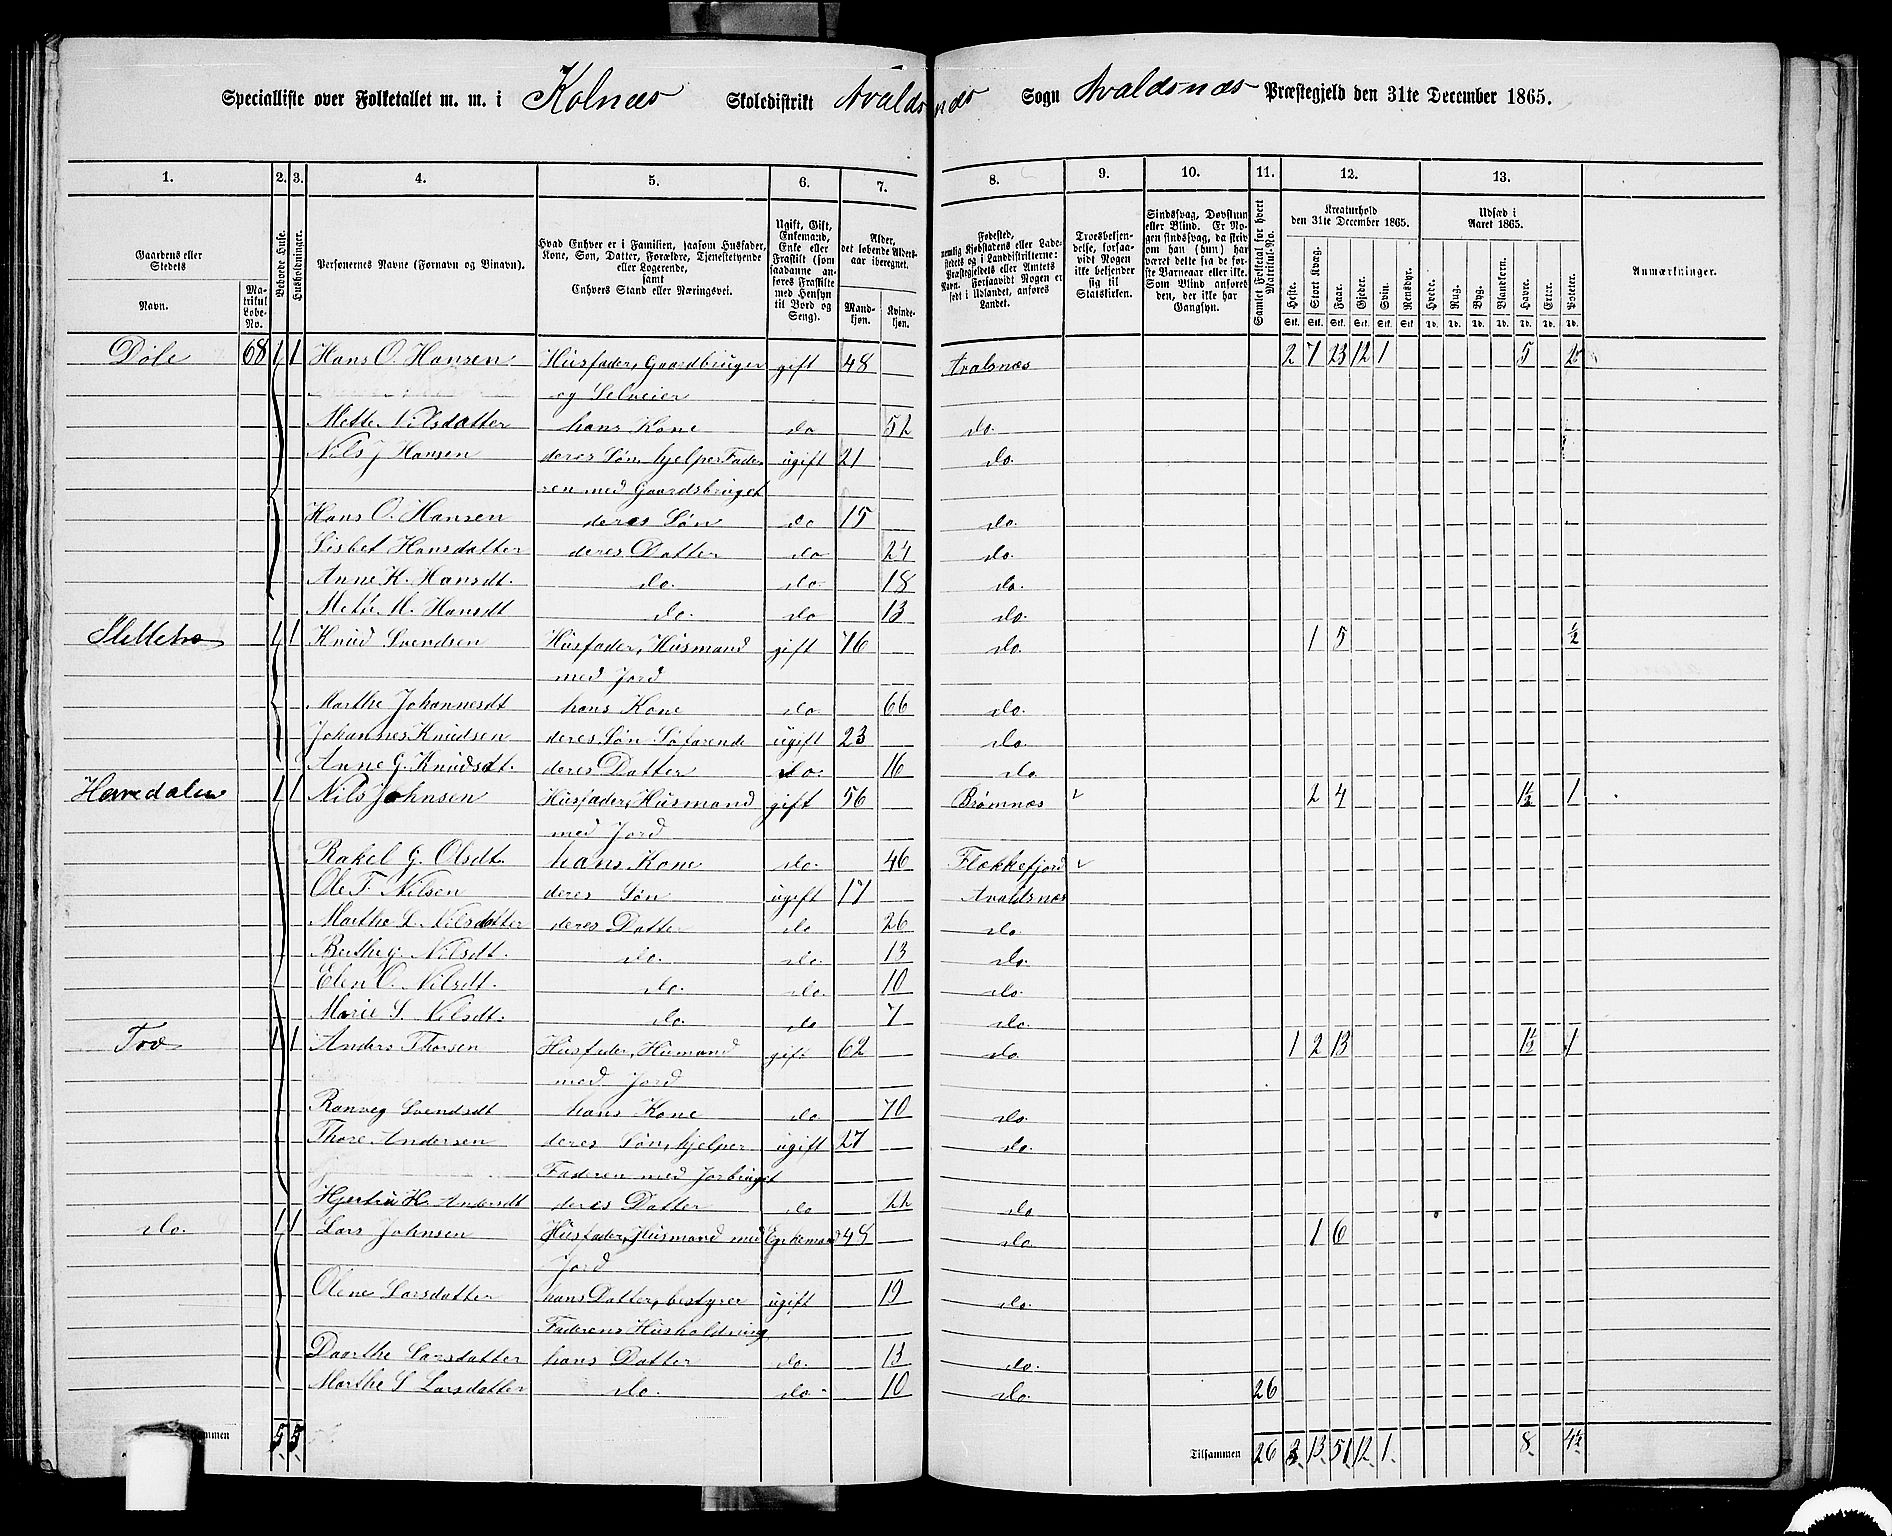 Specialliste over Folketallet m. m. i Kolnæs Skoledistrikt Avaldsnæs Sogn Avaldsnæs Præstegjeld den 31te December 1865.
1. 2. 3. 4. 5. 6. 7. 8. 9. 10. 11. 12. 13.
Gaardens eller Stedets
Navn.
Matrikul Løbe-No.
Beboede Huse.
Husholdninger.
Personernes Navne (Fornavn og Tilnavn).
Hvad Enhver er i Familien, saasom Husfader, Kone, Søn, Datter, Forældre, Tjenestetyende eller Logerende, samt Enhvers Stand eller Næringsvei.
Ugift, Gift, Enkemand, Enke eller Fraskilt (som saadanne anføres Fraskilte med Hensyn til Bord og Seng).
Alder, det løbende Aldersaar iberegnet.
Mandkjøn. Kvindekjøn.
Fødested, nemlig Kjøbstadens eller Ladestedets og i Landdistrikterne: Præstegjeldets eller Amtets Navn. Forsaavidt Nogen er født i Udlandet, anføres Landet.
Troesbekjendelse, forsaavidt Nogen ikke bekjender sig til Statskirken.
Sindssvag, Døvstum eller Blind. Er Nogen sindssvag, da skriv om han (hun) har været det fra de første Barneaar eller ikke. Som Blind anføres den, der ikke har Gangsyn.
Samlet Folketal for hvert Matrikul-No.
Kreaturhold den 31te December 1865.
Heste. Stort Kvæg. Faar. Gjeder. Svin. Rensdyr.
Stk. Stk. Stk. Stk. Stk. Stk.
Udsæd i Aaret 1865.
Hvede. Rug. Byg. Blandkorn. Havre. Erter. Poteter.
Td. Td. Td. Td. Td. Td. Td.
Anmærkninger.
Døle 68 1 1 Hans O. Hansen Husfader, Gaardbruger gift 48 Avalsnæs 2 7 23 12 1 5
og Selveier
Mette Nilsdatter hans Kone do 52 do.
Nils J Hansen deres Søn, hjelper Fade- ugift 21 do.
ren med Gaardsbruget
Hans O. Hansen deres Søn do 15 do.
Lisbet Hansdatter deres Datter do 24 do.
Anne K. Hansdt. do. do. 18 do.
Mette M. Hansdt do. do 13 do.
1 1 Knud Svendsen Husfader, Husmand gift 76 do. 1 5 ½
med Jord
Marthe Johannesdt hans Kone do. 66 do.
Johannes Knudsen deres Søn Søfarende ugift 23 do.
Anne G. Knudsdt. deres Datter do. 16 do.
Hervedalen 1 1 Nils Johnsen Husfader, Husmand gift 56 Brømnæs 2 4 1½ 1
med Jord
Rakel G. Olsdt. hans Kone do. 46 Flekkefjord
Ole T. Nilsen deres Søn ugift 17 Avaldsnæs
Marthe L. Nilsdatter deres Datter do 26 do.
Berthe G. Nilsdt. do. do. 13 do.
Elen O. Nilsdt. do. do. 10 do.
Marie S. Nilsdt. do. do 7 do.
1 1 Anders Thorsen Husfader, Husmand gift 62 do. 1 2 13 1½ 1
med Jord
Ranveg Svendsdt hans Kone do 70 do.
Thore Andersen deres Søn, hjelper ugift 27 do.
Faderen med Jorbruget
Hjertru H. Andersdt deres Datter do 22 do
do. 1 1 Lars Johnsen Husfader, Husmand med Enkemand 48 do. 1 6
Jord
Olene Larsdatter hans Datter, bestyrer ugift 19 do.
Faderens Husholdning
Daarthe Larsdatter hans Datter do. 13 do.
Marthe S Larsdatter do. do. 10 do. 26
5 5 Tilsammen 26 3 13 51 12 1 8 4½